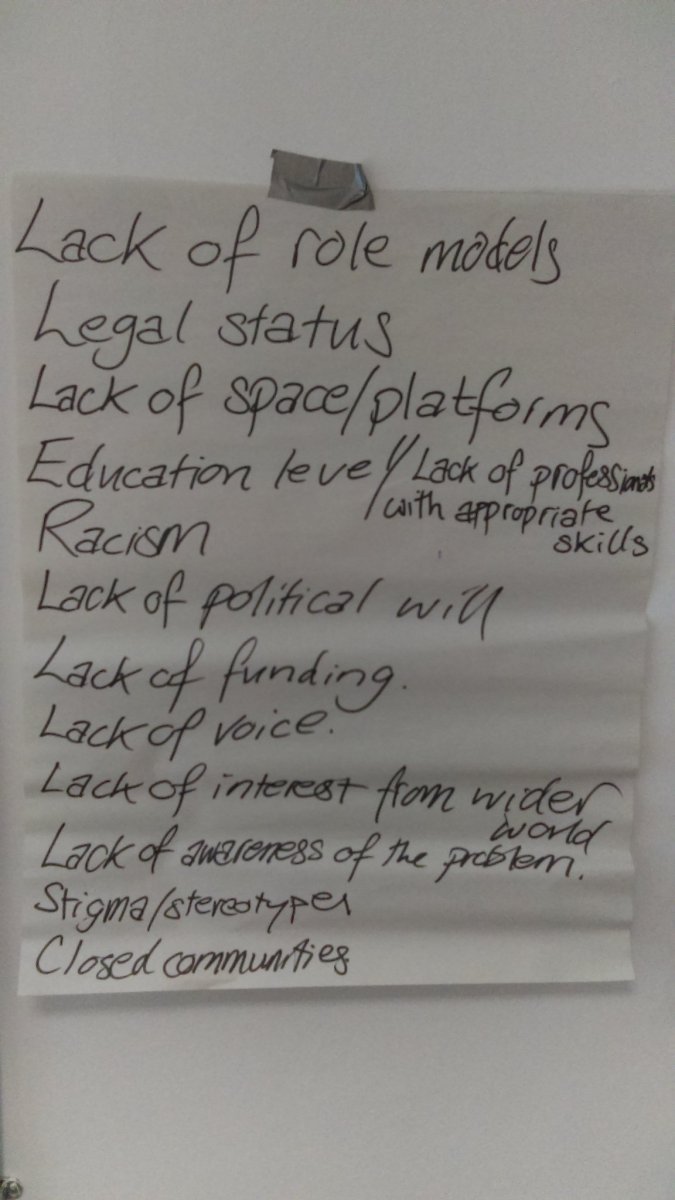 Lack of role models
Legal status
Lack of space/platforms
Education level/ Lack of professionals
with appropriate
skills
Racism
Lack of political will
Lack of funding.
Lack of voice.
Lack of interest from wider
world
Lack of awareness of the problem.
Stigma/stereotypes
Closed communities